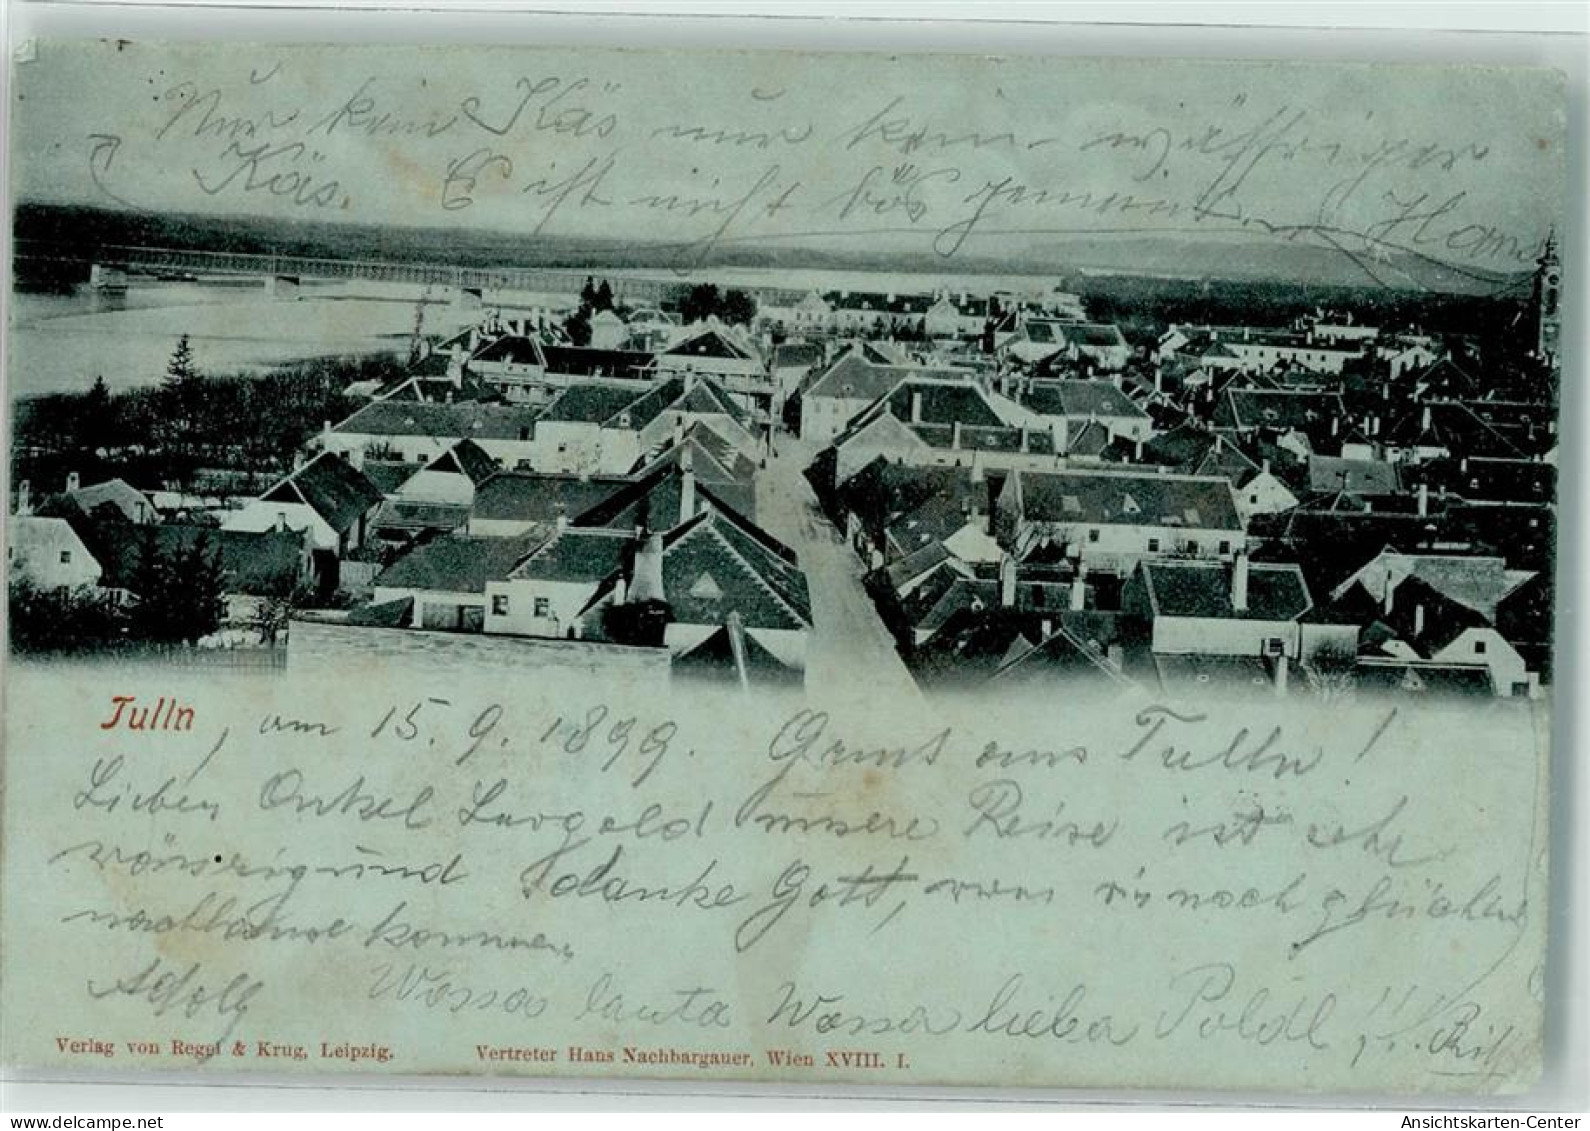 Nur kein Käs nur kein wässriger
Käs. Es ist nicht bös gemeint. Hans
Tulln, am 15. 9. 1899. Gruß aus Tulln!
Lieber Onkel Leopold unsere Reise ist sehr
wässrig und danke Gott, wenn wir noch glücklich
nachhause kommen.
Adolf Wossa lauta Wossa lieba Poldl!
Verlag von Regel & Krug, Leipzig. Vertreter Hans Nachbargauer, Wien XVIII. I.
Tulln
Ansichtskarten-Center